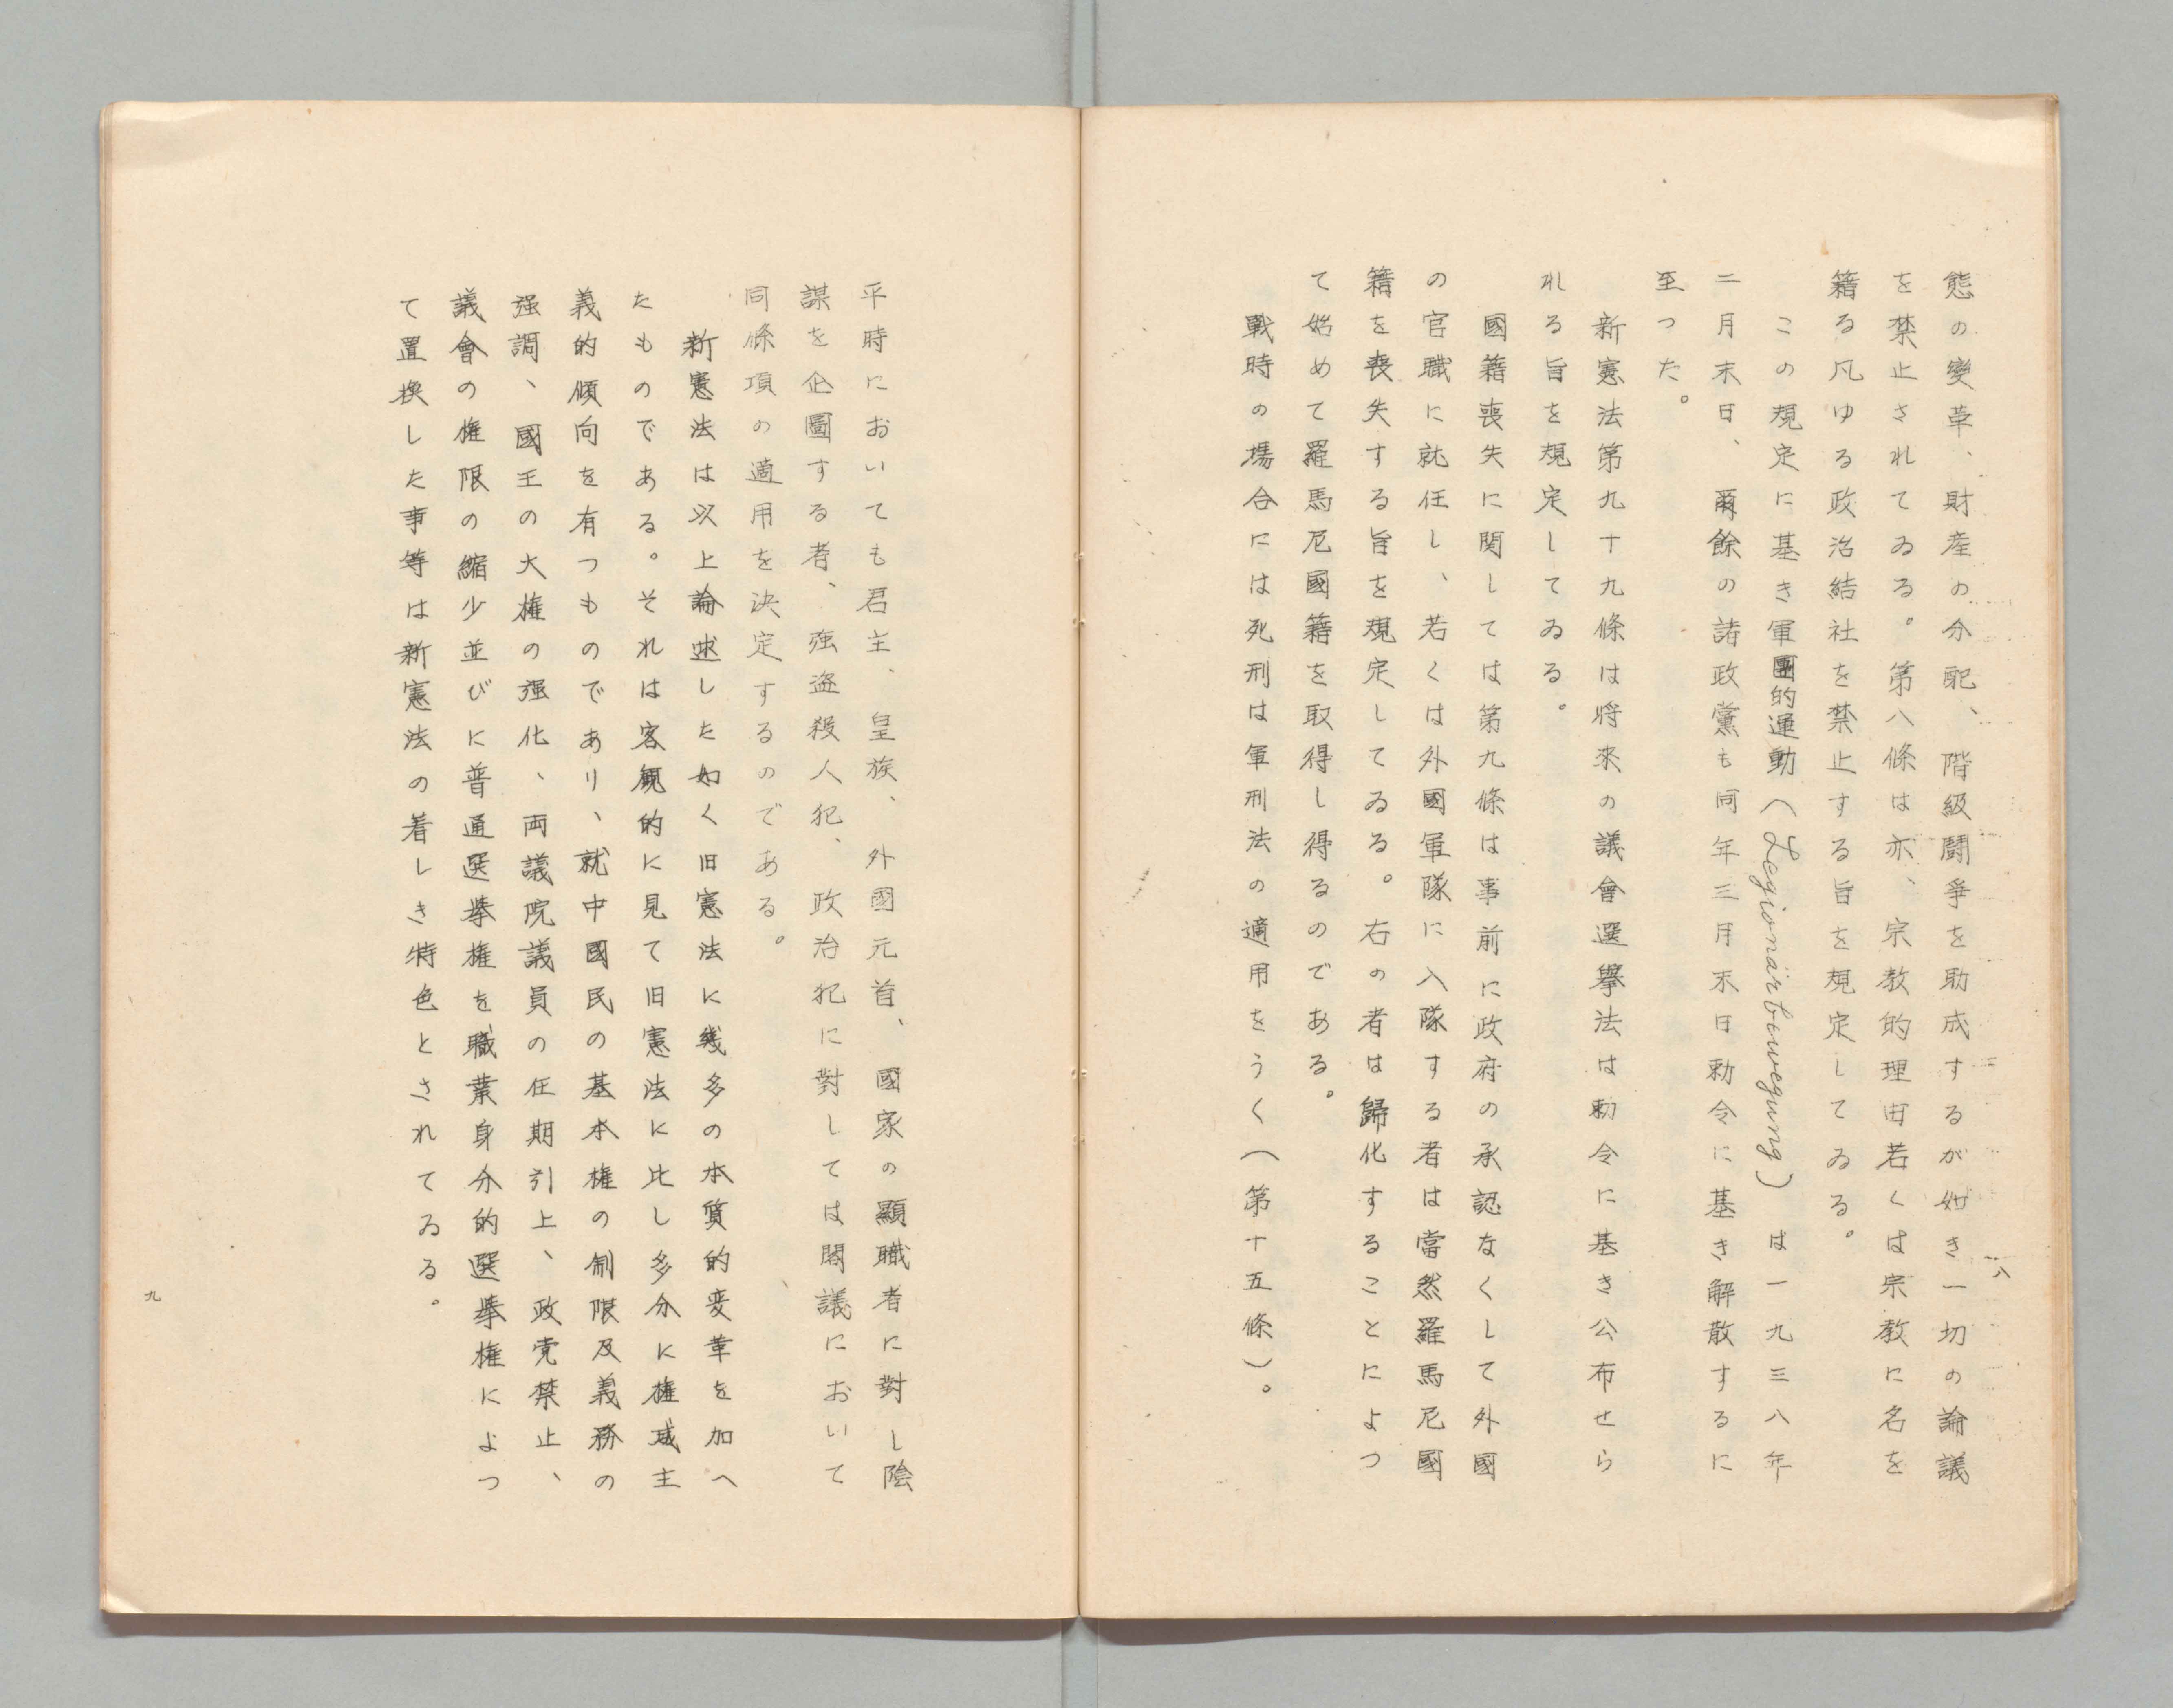 態の變革、財産の分配、階級鬪爭を助成するが如き一切の論議
を禁止されてゐる。第八條は亦、宗教的理由若くは宗教に名を
籍る凡ゆる政治結社を禁止する旨を規定してゐる。
この規定に基き軍團的運動(Legionärbewegung)は一九三八年
二月末日、爾餘の諸政黨も同年三月末日勅令に基き解散するに
至つた。
新憲法第九十九條は將來の議會選擧法は勅令に基き公布せら
れる旨を規定してゐる。
國籍喪失に関しては第九條は事前に政府の承認なくして外國
の官職に就任し、若くは外國軍隊に入隊する者は當然羅馬尼國
籍を喪失する旨を規定してゐる。右の者は歸化することによつ
て始めて羅馬尼國籍を取得し得るのである。
戰時の場合には死刑は軍刑法の適用をうく(第十五條)。
八
平時においても君主、皇族、外國元首、國家の顯職者に對し陰
謀を企圖する者、强盗殺人犯、政治犯に對しては閣議において
同條項の適用を決定するのである。
新憲法は以上論述した如く旧憲法に幾多の本質的変革を加へ
たものである。それは客観的に見て旧憲法に比し多分に権威主
義的傾向を有つものであり、就中國民の基本権の制限及義務の
强調、國王の大権の强化、両議院議員の任期引上、政党禁止、
議會の権限の縮少並びに普通選挙権を職業身分的選挙権によつ
て置換した事等は新憲法の着しき特色とされてゐる。
九